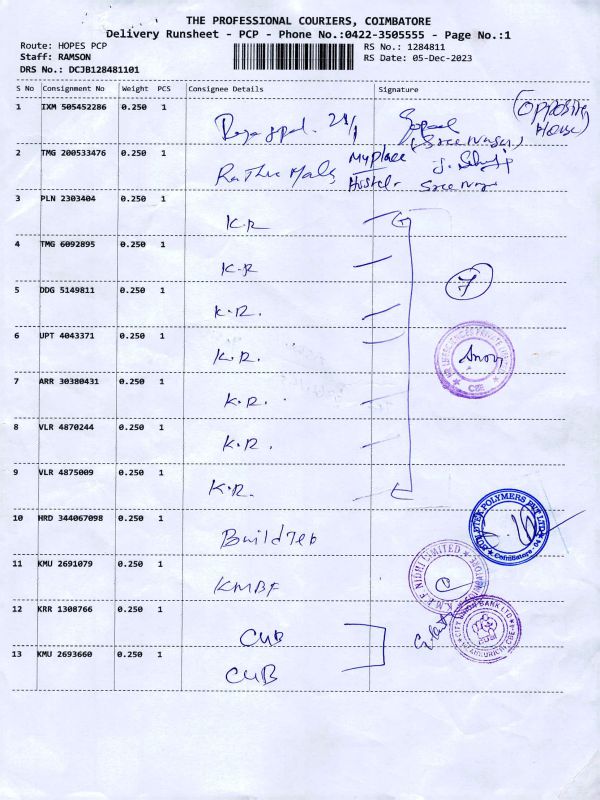 THE PROFESSIONAL COURIERS, COIMBATORE
Delivery Runsheet - PCP - Phone No.:0422-3505555 - Page No.:1
Route: HOPES PCP
RS No.: 1284811
Staff: RAMSON
RS Date: 05-Dec-2023
DRS No.: DCJB128481101
S No Consignment No Weight PCS Consignee Details Signature
1 IXM 505452286 0.250 1
(Opposite House)
2 TMG 200533476 0.250 1 My place Hostel
3 PLN 2303404 0.250 1 K.R
4 TMG 6092895 0.250 1 K.R
5 DDG 5149811 0.250 1 K.R.
7
6 UPT 4043371 0.250 1 K.R.
CBE
7 ARR 30380431 0.250 1 K.R.
8 VLR 4870244 0.250 1 K.R.
9 VLR 4875009 0.250 1 K.R.
10 HRD 344067098 0.250 1 Buildtek
BUILDTEK POLYMERS PVT LTD
Coimbatore - 04
11 KMU 2691079 0.250 1 KMBF
NIDHI LIMITED
12 KRR 1308766 0.250 1 CUB
CITY UNION BANK LTD
13 KMU 2693660 0.250 1 CUB